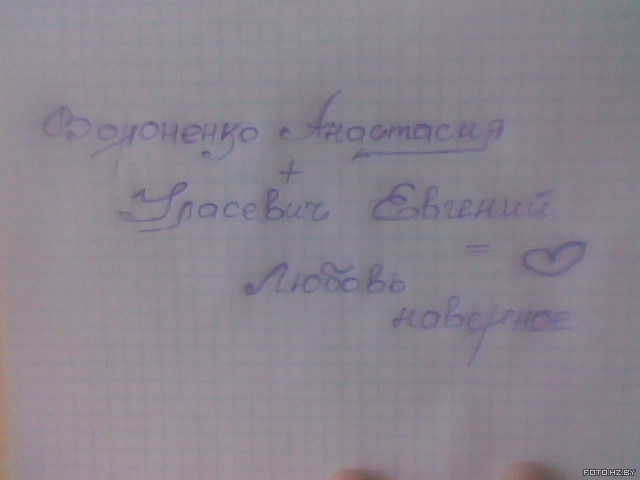 Вороненко Анастасия
+
Уласевич Евгений
= ♡
Любовь
наверное
FOTO.HZ.BY